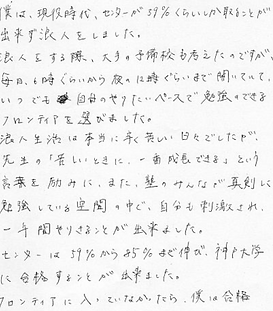 僕は、現役時代、センターが59%くらいしか取ることが
出来ず浪人をしました。
浪人をする際、大手の予備校も考えたのですが、
毎日、6時ぐらいから夜の12時ぐらいまで開いていて、
いつでも自分のやりたいペースで勉強のできる
フロンティアを選びました。
浪人生活は本当に辛く苦しい日々でしたが、
先生の「苦しいときに、一番成長できる」という
言葉を励みに、また、塾のみんなが真剣に
勉強している空間の中で、自分も刺激され、
一年間やりきることが出来ました。
センターは59%から85%まで伸び、神戸大学
に合格することが出来ました。
フロンティアに入っていなかったら、僕は合格